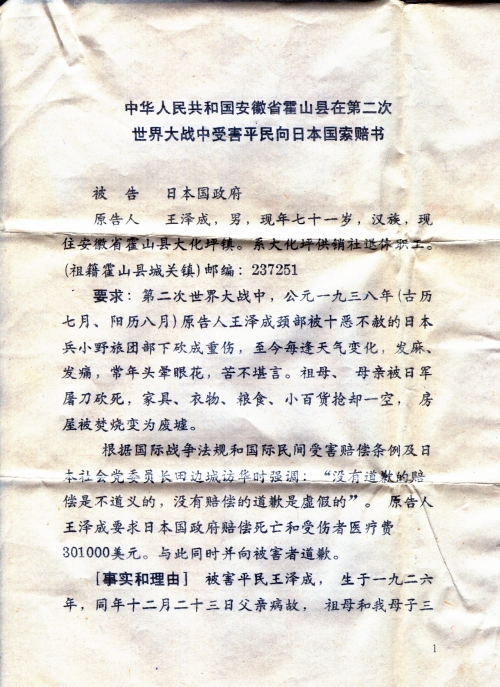 中华人民共和国安徽省霍山县在第二次
世界大战中受害平民向日本国索赔书
被 告 日本国政府
原告人 王泽成，男，现年七十一岁，汉族，现
住安徽省霍山县大化坪镇。系大化坪供销社退休职工。
(祖籍霍山县城关镇)邮编：237251
要求：第二次世界大战中，公元一九三八年(古历
七月、阳历八月)原告人王泽成颈部被十恶不赦的日本
兵小野旅团部下砍成重伤，至今每逢天气变化，发麻、
发痛，常年头晕眼花，苦不堪言。祖母、母亲被日军
屠刀砍死，家具、衣物、粮食、小百货抢却一空，房
屋被焚烧变为废墟。
根据国际战争法规和国际民间受害赔偿条例及日
本社会党委员长田边城访华时强调：“没有道歉的赔
偿是不道义的，没有赔偿的道歉是虚假的”。原告人
王泽成要求日本国政府赔偿死亡和受伤者医疗费
301000美元。与此同时并向被害者道歉。
[事实和理由] 被害平民王泽成， 生于一九二六
年，同年十二月二十三日父亲病故， 祖母和我母子三
1